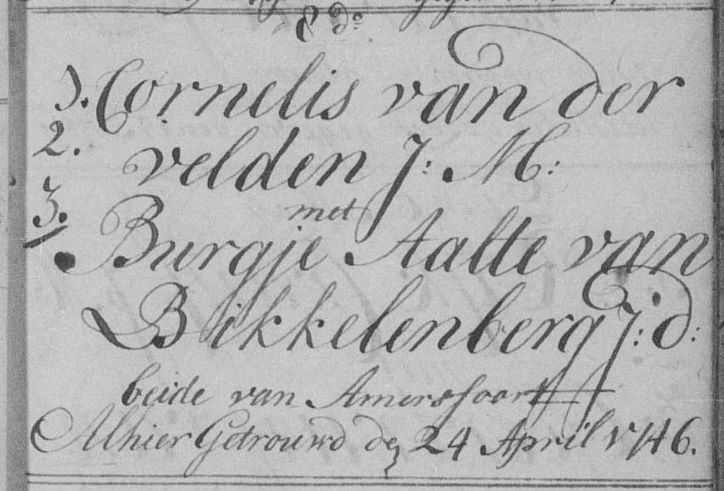 8 do
1. Cornelis van der
2. velden J: M:
3. met
Burgje Aalte van
Bikkelenberg J: d:
beide van Amersfoort
Alhier Getrouwd de 24 April 1746.